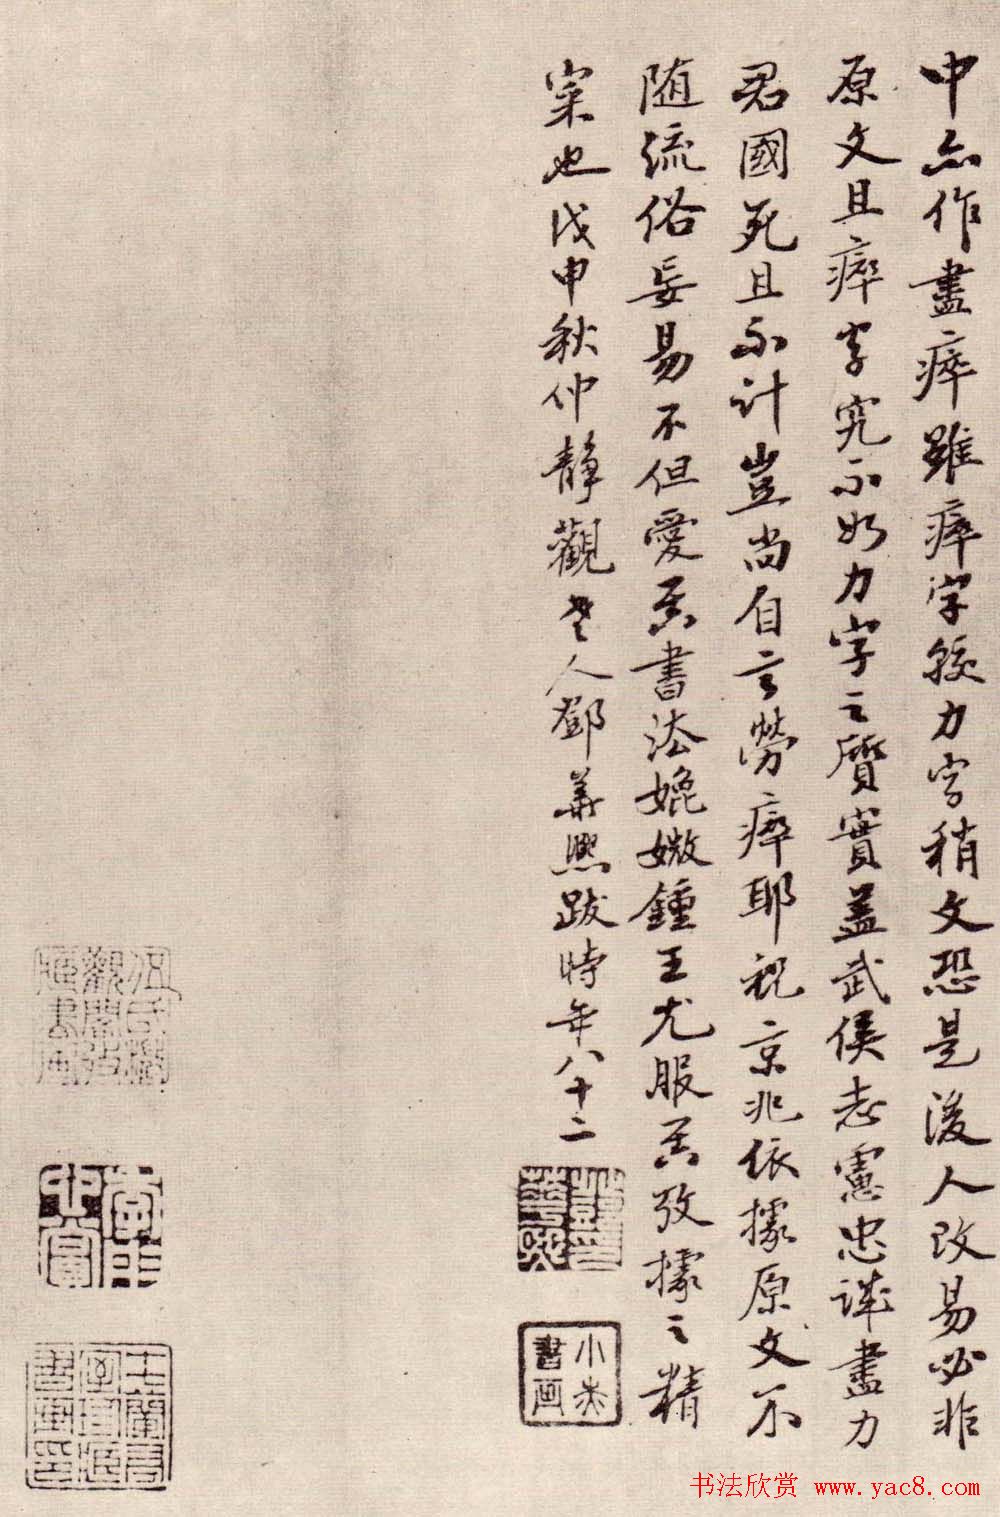 中亦作盡瘁雖瘁字較力字稍文恐是後人改易必非
原文且瘁字究不如力字之質實蓋武侯志慮忠誠盡力
君國死且不計豈尚自言勞瘁耶祝京兆依據原文不
随流俗妄易不但愛其書法媲媺鍾王尤服其攷據之精
寀也戊申秋仲靜觀老人鄧華熙跋時年八十二
鄧華熙印
小赤書画
伍氏
觀
藏書画
心賞
書畫印
书法欣赏 www.yac8.com